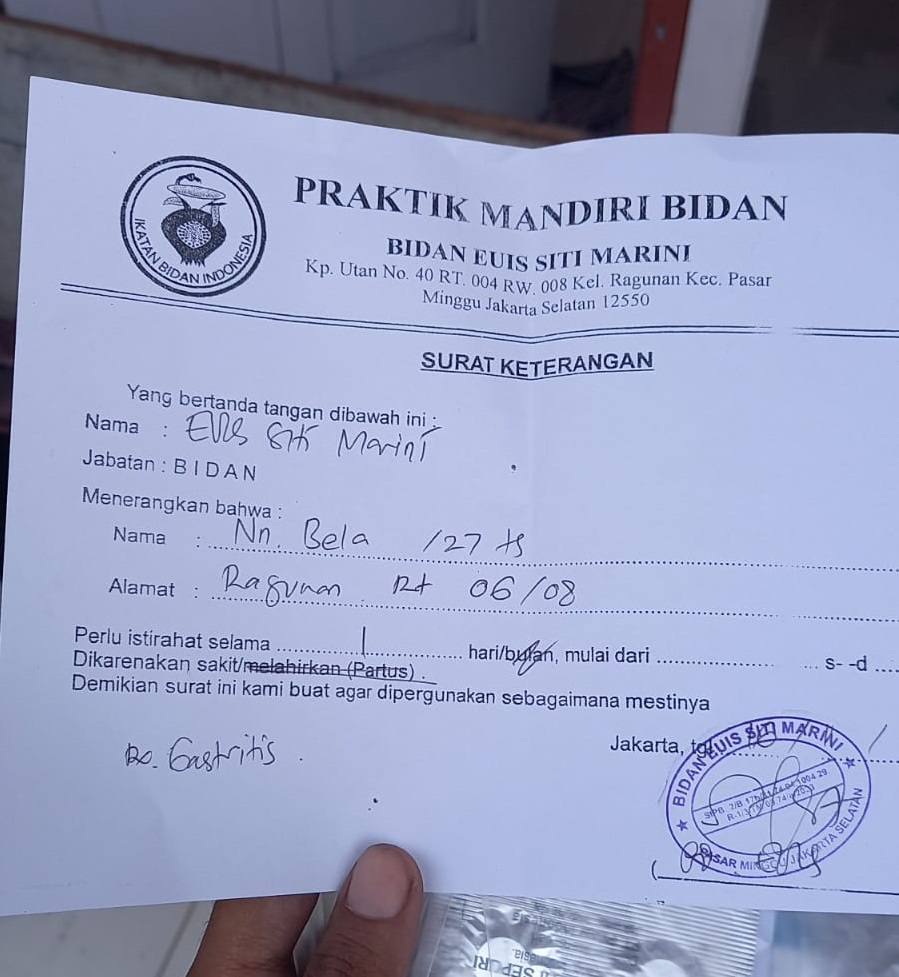 IKATAN BIDAN INDONESIA
PRAKTIK MANDIRI BIDAN
BIDAN EUIS SITI MARINI
Kp. Utan No. 40 RT. 004 RW. 008 Kel. Ragunan Kec. Pasar
Minggu Jakarta Selatan 12550
SURAT KETERANGAN
Yang bertanda tangan dibawah ini :
Nama : Euis Siti Marini
Jabatan : B I D A N
Menerangkan bahwa :
Nama : Nn. Bela /27 th
Alamat : Ragunan Rt 06/08
Perlu istirahat selama 1 hari/bulan, mulai dari s- -d
Dikarenakan sakit/melahirkan (Partus) .
Demikian surat ini kami buat agar dipergunakan sebagaimana mestinya
Jakarta, tgl
Gastritis
BIDAN EUIS SITI MARINI
PASAR MINGGU JAKARTA SELATAN